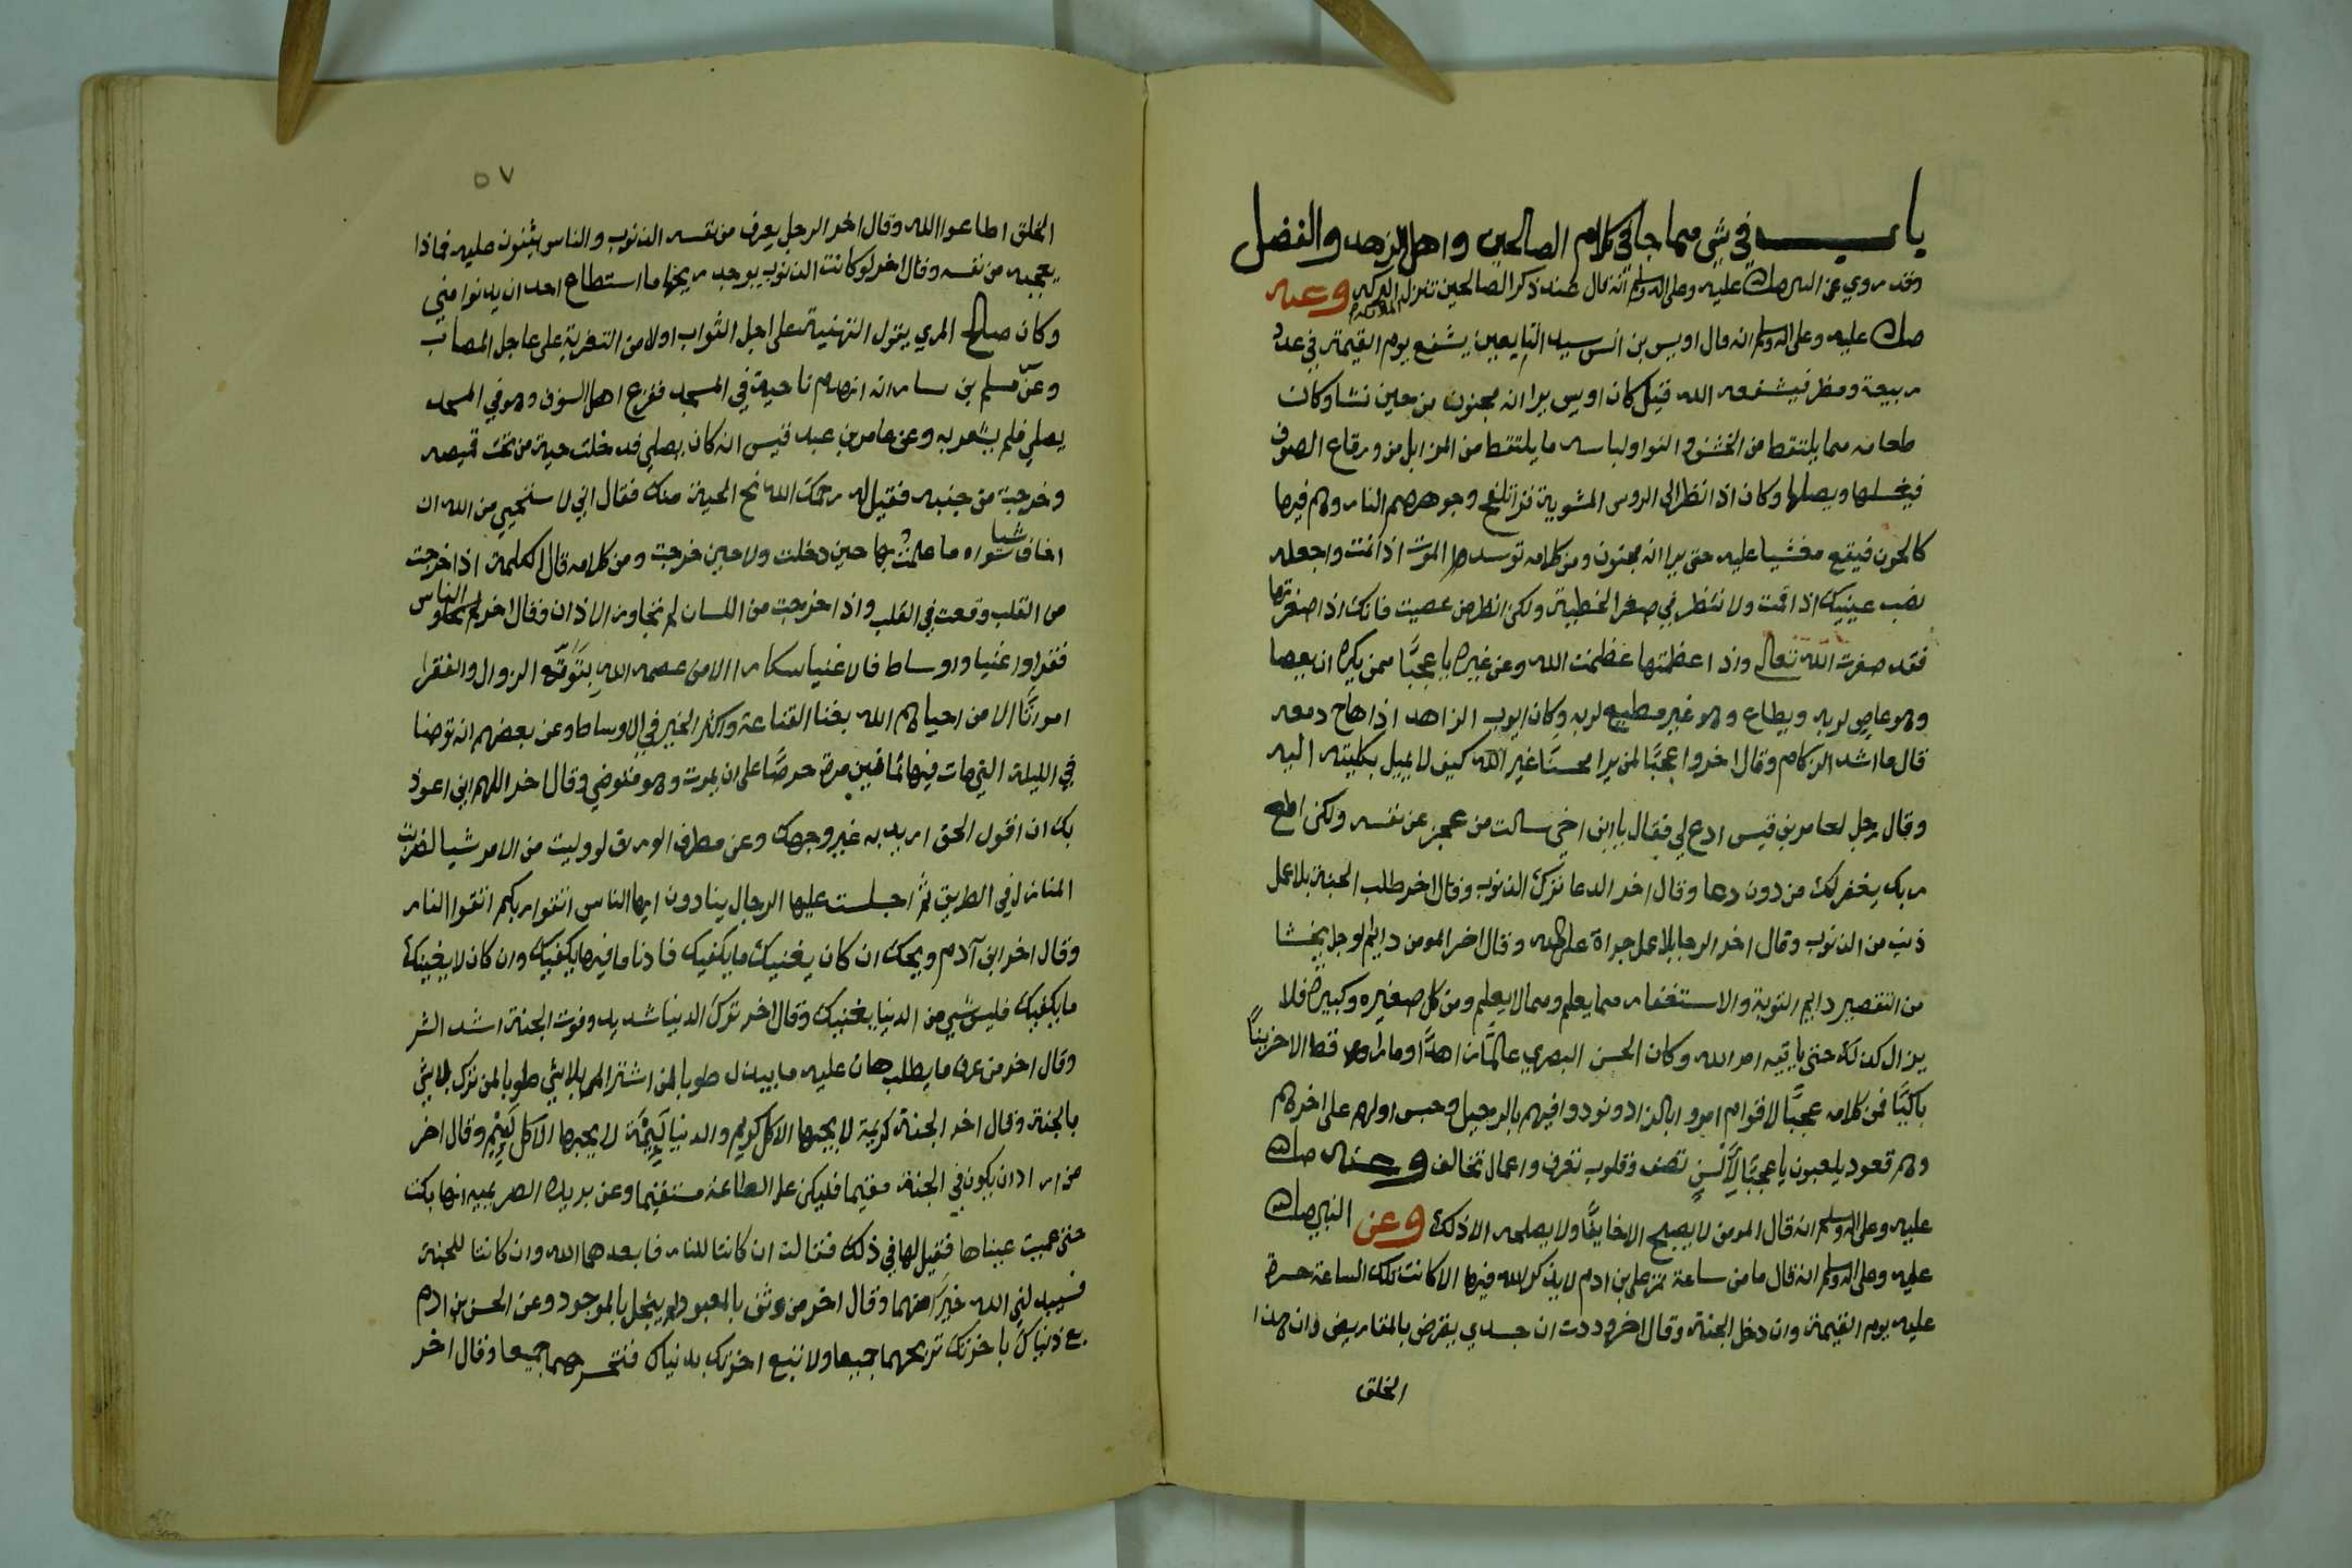 باب في شي مما جا في كلام الصالحين واهل الزهد والفضل
وقد روي عن النبي صلى الله عليه وعلى اله وسلم انه قال عند ذكر الصالحين تنزل البركه وعنه
صلى الله عليه وعلى اله وسلم انه قال اويس بن انس سيد التابعين يشفع يوم القيمة في عدد
ربيعة ومضر فيشفعه الله قيل كان اويس يرا انه مجنون من حين نشا وكان
طعامه مما يلتقط من الخشف والنوا ولباسه ما يلتقط من المزابل من رقاع الصوف
فيغسلها ويصلها وكان اذا نظر الى الروس المشوية قرا تلفح وجوههم النار وهم فيها
كالحون فيقع مغشيا عليه حتى يرا انه مجنون ومن كلامه توسد الموت اذا نمت واجعله
نصب عينيك اذا قمت ولا تنظر في صغر الخطية ولكن انظر من عصيت فانك اذا صغرتها
فقد صغرت الله تعالى واذا عظمتها عظمت الله وعن غيره يا عجبًا ممن يكره ان يعصا
وهو عاصٍ لربه ويطاع وهو غير مطيع لربه وكان ايوب الزاهد اذا هاج دمعه
قال ما اشد الزكام وقال اخر وا عجبًا لمن يرا محسنًا غير الله كيف لا يميل بكليته اليه
وقال رجل لعامر بن قيس ادع لي فقال يا ابن اخي سالت من عجز عن نفسه ولكن اطع
ربك يغفر لك من دون دعا وقال اخر الدعا ترك الذنوب وقال اخر طلب الجنة بلا عمل
ذنب من الذنوب وقال اخر الرجا بلا عمل جراة على الله وقال اخر المومن دايم الوجل يخشا
من التقصير دايم التوبة والاستغفار مما يعلم ومما لا يعلم ومن كل صغيره وكبيرة فلا
يزال كذلك حتى ياتيه امر الله وكان الحسن البصري عالمًا زاهدًا وما راوه قط الا حزينًا
باكيًا فمن كلامه عجبًا لاقوام امروا بالزاد ونودوا فيهم بالرحيل وحبس اولهم على اخرهم
وهم قعود يلعبون يا عجبًا لألسنٍ تصف وقلوب تعرف واعمال تخالف وعنه صلى الله
عليه وعلى اله وسلم انه قال المومن لا يصبح الا خايفًا ولا يصلحه الا ذلك وعن النبي صلى الله
عليه وعلى اله وسلم انه قال ما من ساعة تمر على بن ادم لا يذكر الله فيها الا كانت تلك الساعة حسرة
عليه يوم القيمة وان دخل الجنة وقال اخر وددت ان جسدي يقرض بالمقاريض وان هذا
الخلق
٥٧
الخلق اطاعوا الله وقال اخر الرجل يعرف من نفسه الذنوب والناس يثنون عليه فماذا
يعجبه من نفسه وقال اخر لو كانت الذنوب يوجد ريحها ما استطاع احد ان يدنوا مني
وكان صالح المري يقول التهنية على اجل الثواب اولا من التعزية على عاجل المصاب
وعن مسلم بن يسار انه انهدم ناحية في المسجد ففزع اهل السوق وهو في المسجد
يصلي فلم يشعر به وعن عامر بن عبد قيس انه كان يصلي فدخلت حية من تحت قميصه
وخرجت من جنبه فقيل له رحمك الله نح الحية عنك فقال اني لاستحيي من الله ان
اخاف شيا سواه ما علمت بها حين دخلت ولا حين خرجت ومن كلامه قال الكلمة اذا خرجت
من القلب وقعت في القلب واذا خرجت من اللسان لم تجاوز الاذان وقال اخر الناس
فقرا واغنيا واوساط فالاغنيا سكارا الا من عصمه الله بتوقع الزوال والفقرا
امواتًا الا من احياهم الله بغنا القناعة واكثر الخير في الاوساط وعن بعضهم انه توضا
في الليلة التي مات فيها ثمانين مرة حرصًا على ان يموت وهو متوضي وقال اخر اللهم اني اعوذ
بك ان اقول الحق اريد به غير وجهك وعن مطرف الوراق لو وليت من الامر شيا لضربت
المنازل في الطريق ثم اجلست عليها الرجال ينادون ايها الناس اتقوا ربكم اتقوا النار
وقال اخر ابن آدم ويحك ان كان يغنيك ما يكفيك فادنا ما فيها يكفيك وان كان لا يغنيك
ما يكفيك فليس شي من الدنيا يغنيك وقال اخر ترك الدنيا شديد وفوت الجنة اشد الشر
وقال اخر من عرف ما يطلب هان عليه ما يبذل طوبا لمن اشترا بلاشي طوبا لمن ترك بلاشي
بالجنة وقال اخر الجنة كريمة لا يحبها الا كل كريم والدنيا لييمة لا يحبها الا كل لييم وقال اخر
من اراد ان يكون في الجنة مقيما فليكن على الطاعة مستقيما وعن بريده الصريميه انها بكت
حتى عميت عيناها فقيل لها في ذلك فقالت ان كانتا للنار فابعدهما الله وان كانتا للجنة
فسيبدلني الله خيرًا منهما وقال اخر من وثق بالمعبود لم يبخل بالموجود وعن الحسن بن ادم
بع دنياك باخرتك تربحهما جميعا ولا تبع اخرتك بدنياك فتخسرهما جميعا وقال اخر